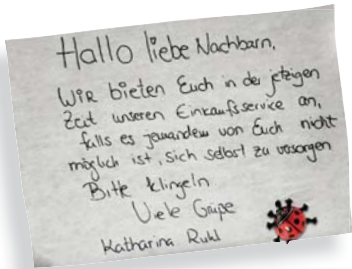 Hallo liebe Nachbarn,
Wir bieten Euch in der jetzigen
Zeit unseren Einkaufsservice an,
falls es jemandem von Euch nicht
möglich ist, sich selbst zu vosorgen
Bitte klingeln
Viele Grüße
Katharina Ruhl